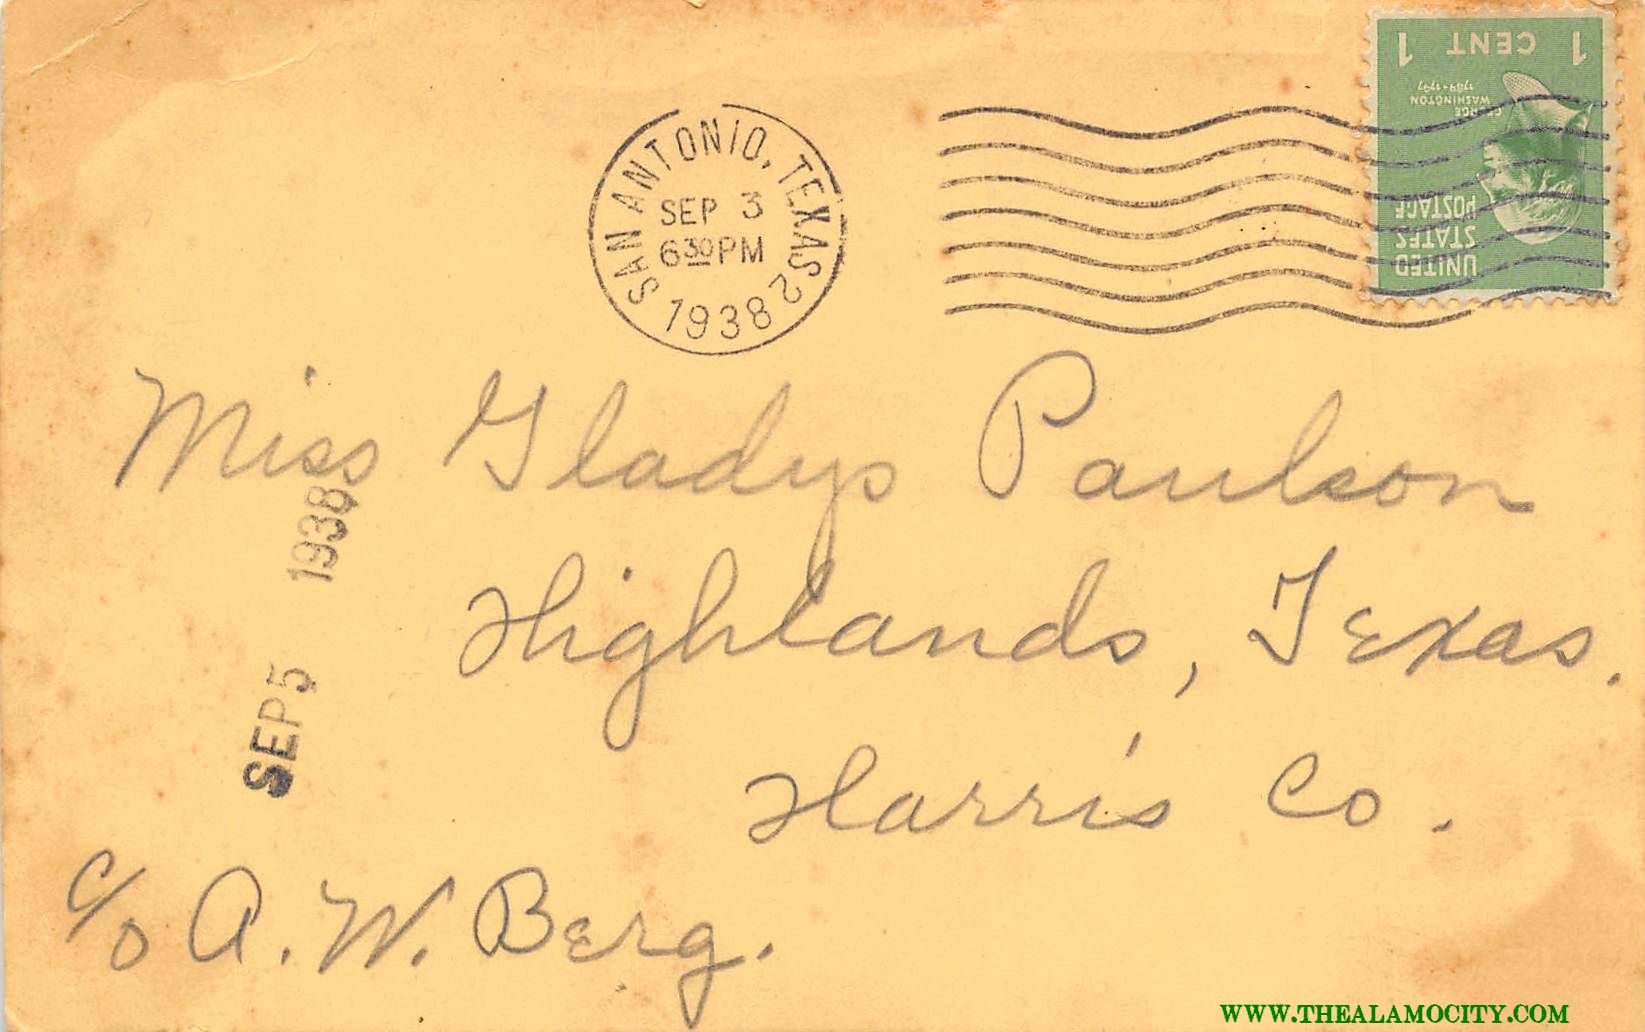 1 CENT 1
GEORGE
WASHINGTON
1789-1797
UNITED
STATES
POSTAGE
SAN ANTONIO, TEXAS 2
SEP 3
6 30 PM
1938
Miss Gladys Paulson
Highlands, Texas.
Harris Co.
c/o A. W. Berg.
SEP 5 1938
WWW.THEALAMOCITY.COM